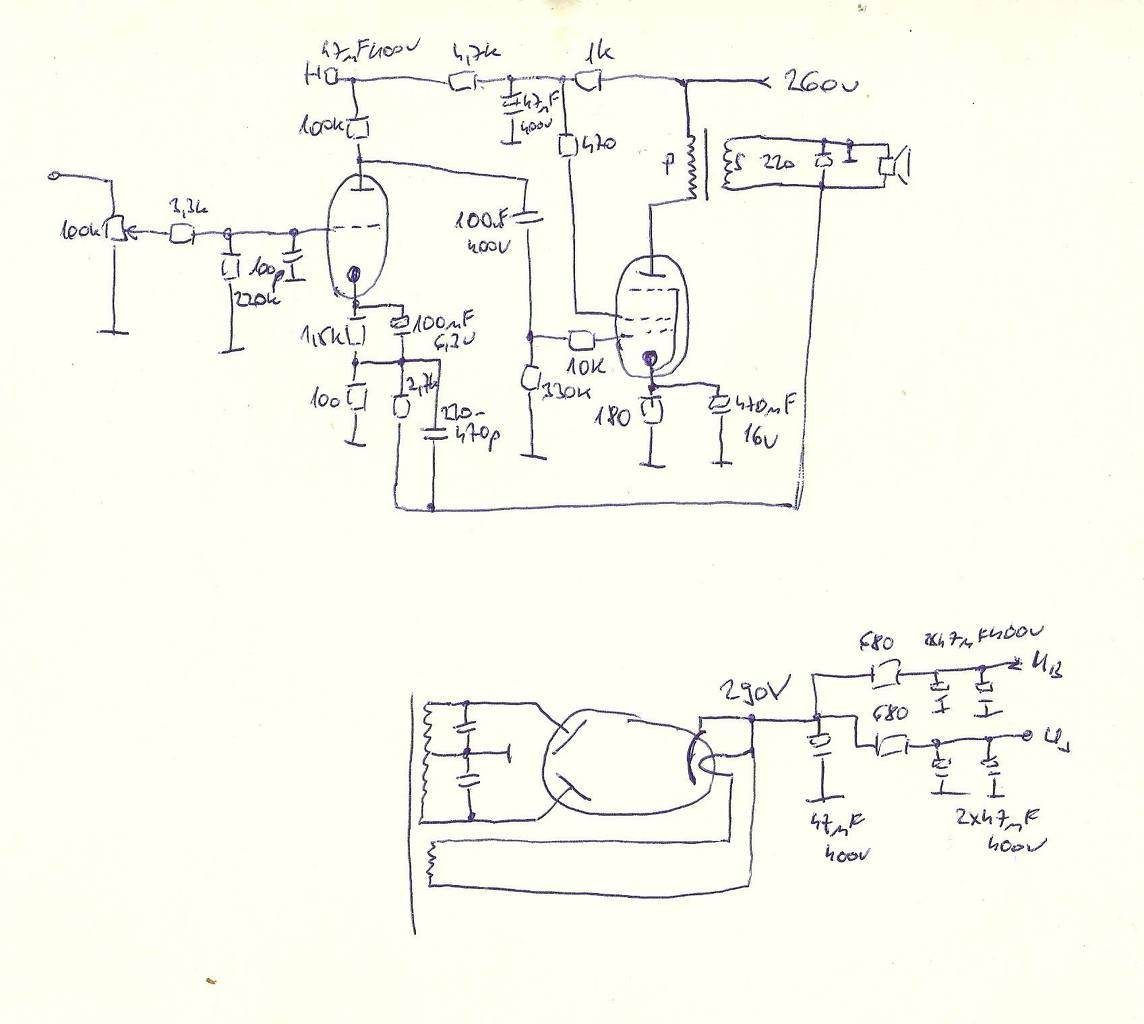 47µF400V
4,7k
1k
260V
47µF
400V
100k
470
P
S
220
3,3k
100k
100µF
400V
100p
220k
1,5k
100µF
6,3V
10k
330k
100
2,7k
220-
470p
180
470µF
16V
680
2x47µF400V
UB
290V
680
47µF
400V
2x47µF
400V